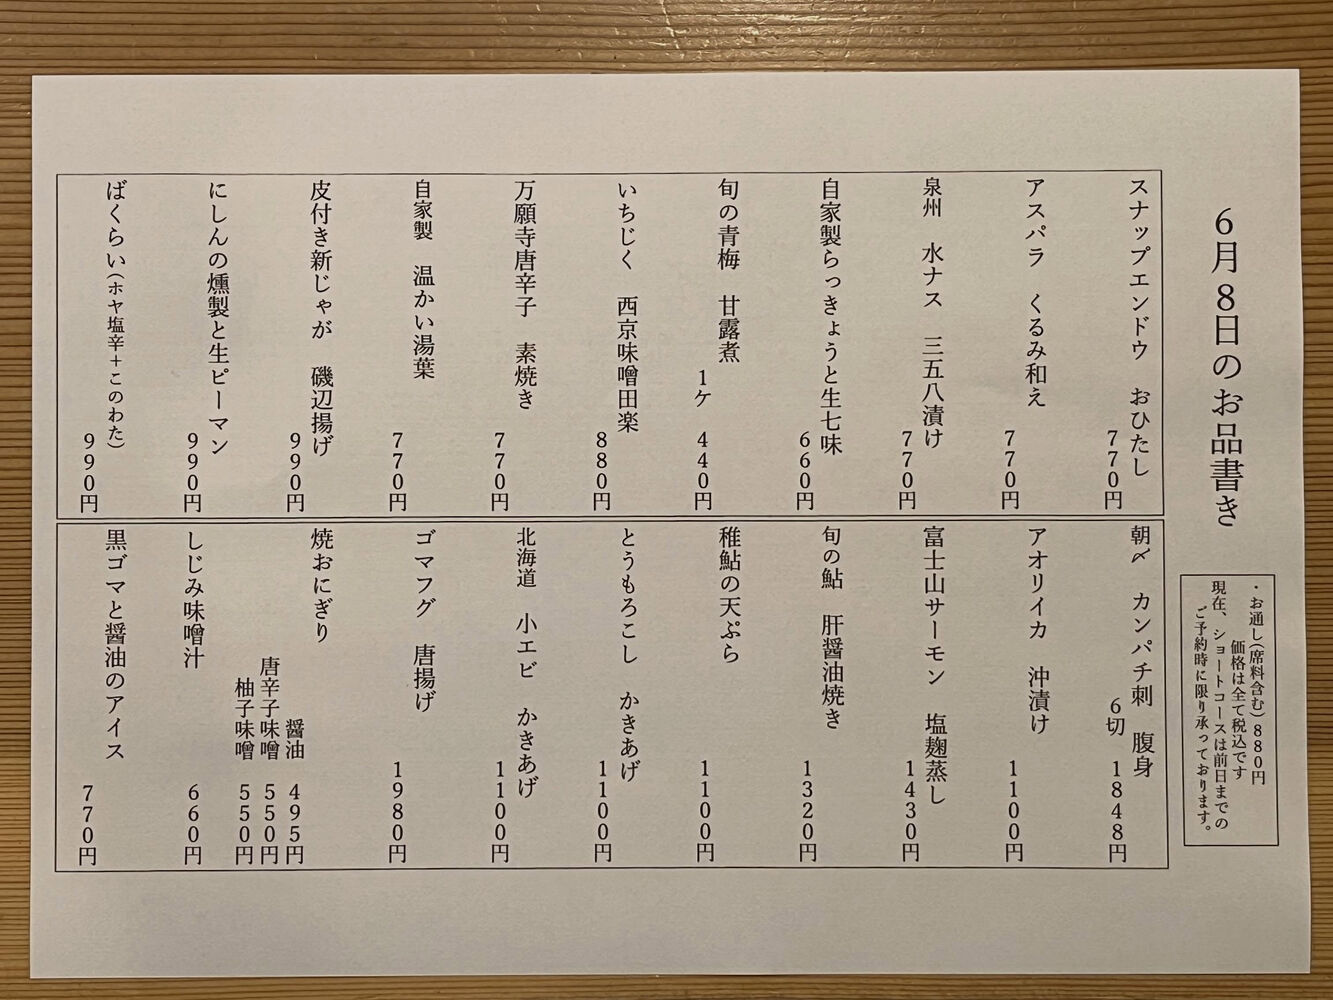 6月8日のお品書き
・お通し(席料含む)880円
価格は全て税込です
現在、ショートコースは前日までの
ご予約時に限り承っております。
スナップエンドウ　おひたし
770円
アスパラ　くるみ和え
770円
泉州　水ナス　三五八漬け
770円
自家製らっきょうと生七味
660円
旬の青梅　甘露煮
1ケ　440円
いちじく　西京味噌田楽
880円
万願寺唐辛子　素焼き
770円
自家製　温かい湯葉
770円
皮付き新じゃが　磯辺揚げ
990円
にしんの燻製と生ピーマン
990円
ばくらい(ホヤ塩辛+このわた)
990円
朝〆　カンパチ刺　腹身
6切　1848円
アオリイカ　沖漬け
1100円
富士山サーモン　塩麹蒸し
1430円
旬の鮎　肝醤油焼き
1320円
稚鮎の天ぷら
1100円
とうもろこし　かきあげ
1100円
北海道　小エビ　かきあげ
1100円
ゴマフグ　唐揚げ
1980円
焼おにぎり
醤油　495円
唐辛子味噌　550円
柚子味噌　550円
しじみ味噌汁
660円
黒ゴマと醤油のアイス
770円